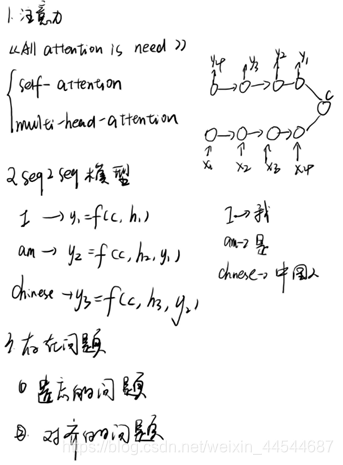 1.注意力
《All attention is need》
self-attention
multi-head-attention
y4 y3 y2 y1
C
x1 x2 x3 x4
2 seq2seq模型
I → y1=f(c,h1)
am → y2=f(c,h2,y1)
chinese → y3=f(c,h3,y2)
I→我
am→是
chinese→中国人
3存在问题
① 遗忘的问题
② 对齐的问题
https://blog.csdn.net/weixin_44544687